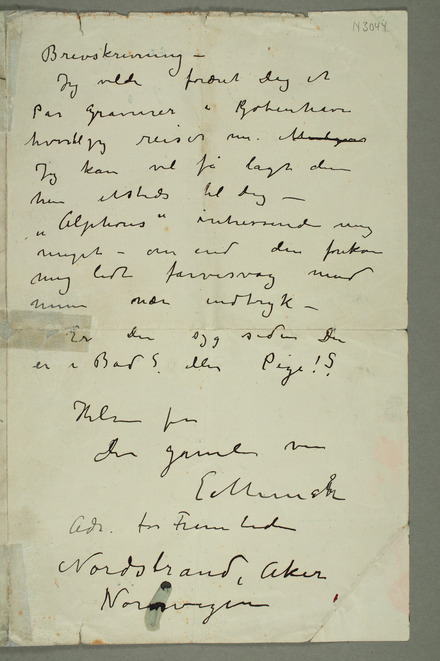 N 3044
Brevskrivning –
Jeg vilde foræret Dig et
Par Gravurer i Kjøbenhavn
hvortil jeg reiser nu.
Jeg kan vel få lagt dem
hen etsteds til Dig –
„Alphons“ interesserede mig
meget – om end den forekom
mig lidt farvesvag mod
min indtryk –
Er Du syg siden Du
er i Bad? eller Pige!?
Hilsen fra
Din gamle ven
E Munch
Adr. for Fremtiden
Nordstrand, Aker
Norwegen